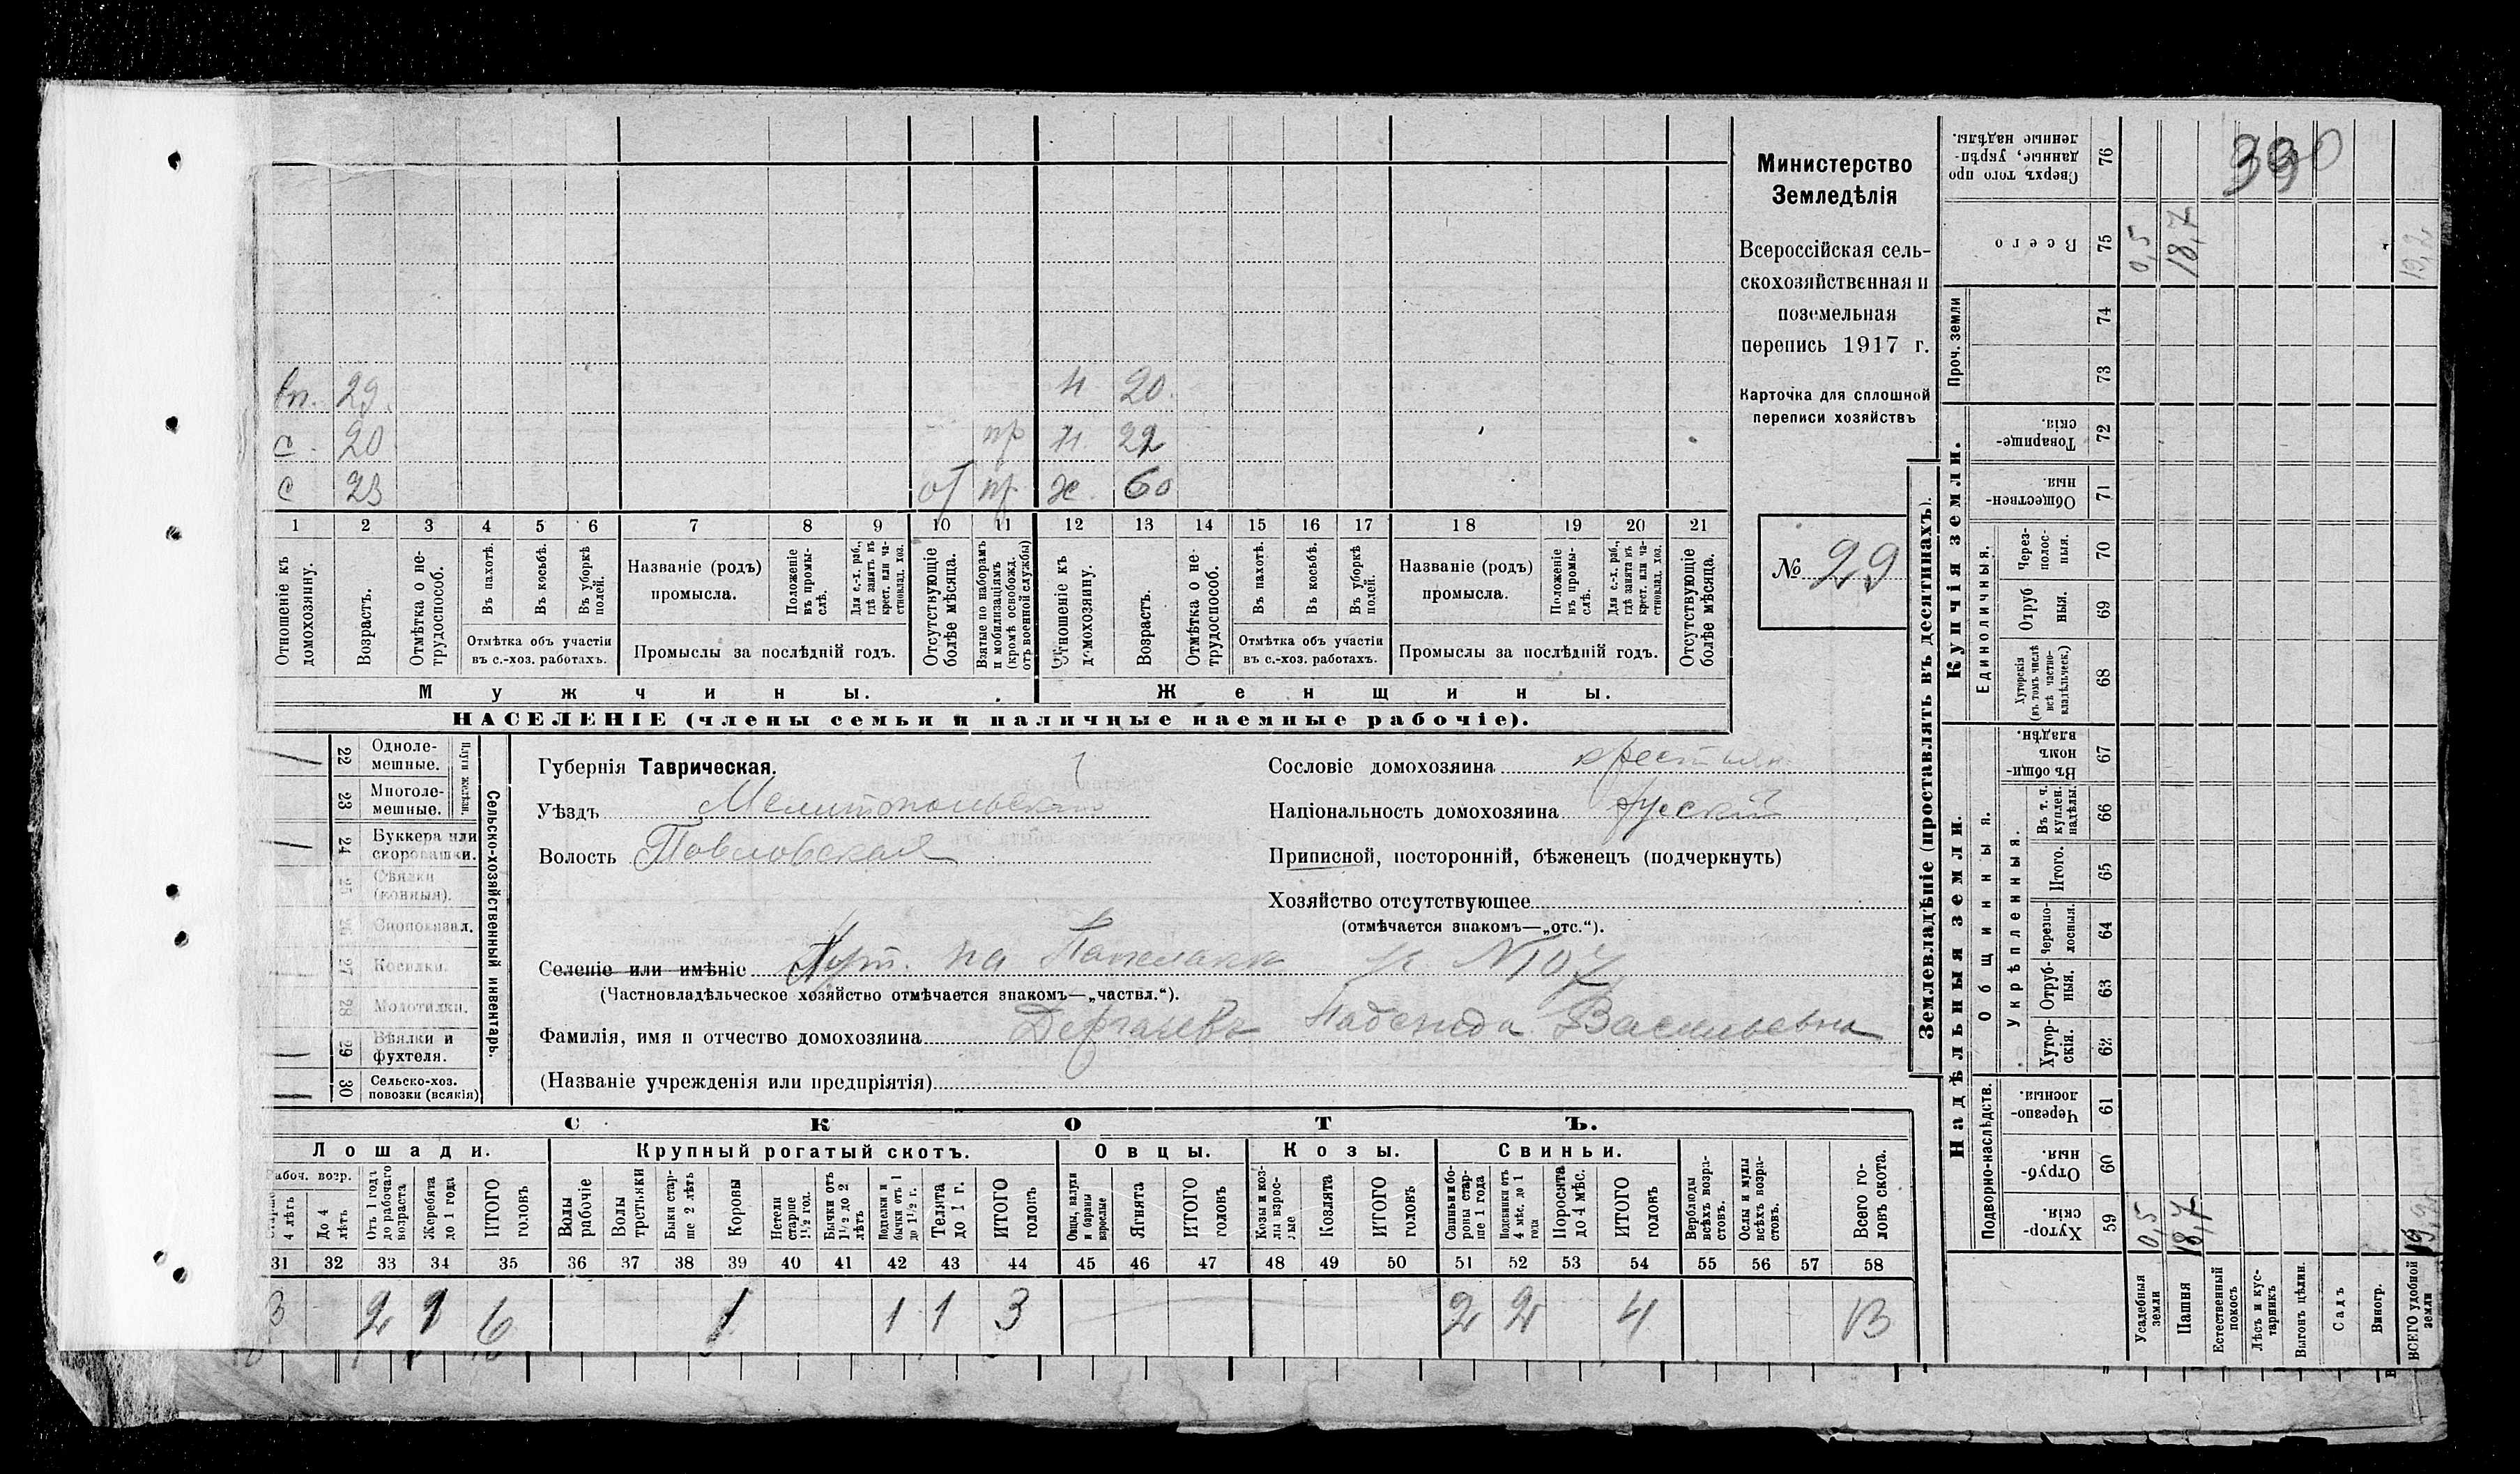 Министерство
Земледѣлія
Всероссійская сель-
скохозяйственная и
поземельная
перепись 1917 г.
Карточка для сплошной
переписи хозяйствъ
№ 29
390
вп. 29.
с. 20
с 23
пр
от пр
н 20.
н. 22
ж. 60
1 2 3 4 5 6 7 8 9 10 11 12 13 14 15 16 17 18 19 20 21
Отношеніе къ домохозяину.
Возрастъ.
Отмѣтка о не-трудоспособ.
Въ пахотѣ.
Въ косьбѣ.
Въ уборкѣ полей.
Отмѣтка объ участіи
въ с.-хоз. работахъ.
Названіе (родъ)
промысла.
Положеніе въ промы-слѣ.
Для с.-х. раб., гдѣ занятъ въ крест. или ча-стновлад. хоз.
Промыслы за послѣдній годъ.
Отсутствующіе болѣе мѣсяца.
Взятые по наборамъ и мобилизаціямъ (кромѣ освобожд. отъ военной службы)
Отношеніе къ домохозяину.
Возрастъ.
Отмѣтка о не-трудоспособ.
Въ пахотѣ.
Въ косьбѣ.
Въ уборкѣ полей.
Отмѣтка объ участіи
въ с.-хоз. работахъ.
Названіе (родъ)
промысла.
Положеніе въ промы-слѣ.
Для с.-х. раб., гдѣ занята въ крест. или ча-стновлад. хоз.
Промыслы за послѣдній годъ.
Отсутствующіе болѣе мѣсяца.
Мужчины. Женщины.
НАСЕЛЕНІЕ (члены семьи и наличные наемные рабочіе).
Сельско-хозяйственный инвентарь.
Плуги желѣзн.
22 Одноле-мешные.
23 Многоле-мешные.
24 Буккера или скоропашки.
25 Сѣялки (конныя).
26 Сноповязал.
27 Косилки.
28 Молотилки.
29 Вѣялки и фухтеля.
30 Сельско-хоз. повозки (всякія)
Губернія Таврическая.
Уѣздъ Мелитопольскій
Волость Павловская
Сословіе домохозяина крестьян.
Національность домохозяина русскій
Приписной, посторонній, бѣженецъ (подчеркнуть)
Хозяйство отсутствующее
(отмѣчается знакомъ—„отс.“).
Селеніе или имѣніе Хут. на
(Частновладѣльческое хозяйство отмѣчается знакомъ—„частвл.“).
Фамилія, имя и отчество домохозяина Дергачевъ Надежда Васильевна
(Названіе учрежденія или предпріятія)
СКОТЪ.
Лошади. Крупный рогатый скотъ. Овцы. Козы. Свиньи.
4 лѣтъ
До 4 лѣтъ
Отъ 1 года до рабочаго возраста
Жеребята до 1 года
ИТОГО головъ
Волы рабочіе
Волы третьяки
Быки стар-ше 2 лѣтъ
Коровы
Нетели старше 1½ год.
Бычки отъ 1½ до 2 лѣтъ
Подтелки и бычки отъ 1 до 1½ г.
Телята до 1 г.
ИТОГО головъ
Овцы, валухи и бараны взрослые
Ягнята
ИТОГО головъ
Козы и коз-лы взрос-лые
Козлята
ИТОГО головъ
Свиньи и бо-ровы стар-ше 1 года
Подсвинки отъ 4 мѣс. до 1 года
Поросята до 4 мѣс.
ИТОГО головъ
Верблюды всѣхъ возра-стовъ.
Ослы и мулы всѣхъ возра-стовъ.
Всего го-ловъ скота.
31 32 33 34 35 36 37 38 39 40 41 42 43 44 45 46 47 48 49 50 51 52 53 54 55 56 57 58
3 2 1 6 1 1 1 3 2 2 4 13
Землевладѣніе (проставлять въ десятинахъ).
Надѣльныя земли.
Подворно-наслѣдств.
Хутор-скія. 59
Отруб-ныя. 60
Черезпо-лосныя. 61
Общинныя.
Укрѣпленныя.
Хутор-скія. 62
Отруб-ныя. 63
Черезпо-лосныя. 64
Итого. 65
Въ т. ч. куплен. надѣлы. 66
Въ общи-номъ владѣн. 67
Купчія земли.
Единоличныя.
Хуторскія (въ томъ числѣ всѣ частно-владѣльческ.) 68
Отруб ныя. 69
Через-полос-ныя. 70
Обществен-ныя 71
Товарище-скія. 72
Проч. земли
73
74
Всего 75
Сверхъ того про данные, укрѣп-ленные надѣлы. 76
Усадебныя земли 0,5 0,5
Пашня 18,7 18,7
Естественный покосъ
Лѣсъ и кус-тарникъ
Выгонъ цѣлин.
Садъ
Виногр.
ВСЕГО удобной земли 19,2 19,2